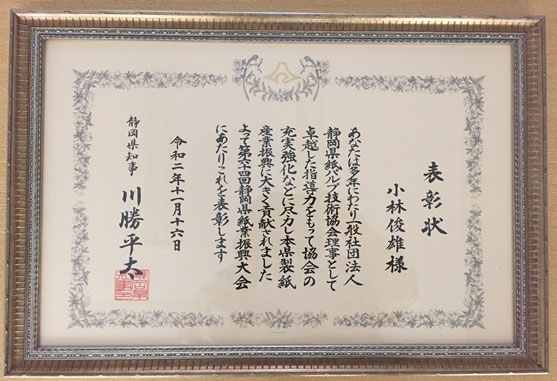 表彰状
小林俊雄様
あなたは多年にわたり一般社団法人
静岡県紙パルプ技術協会理事として
卓越した指導力をもって協会の
充実強化などに尽力し本県製紙
産業振興に大きく貢献されました
よって第六十四回静岡県紙業振興大会
にあたりこれを表彰します
令和二年十一月十六日
静岡県知事 川勝平太